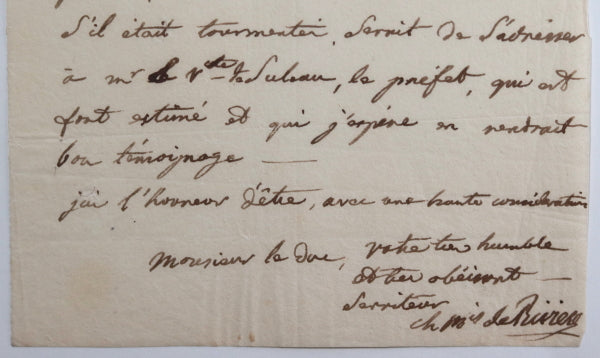 s'il était tourmenter, serait de s'adresser
à mr le Vte de Suleau, le préfet, qui est
fort estimé et qui j'espére en rendrait
bon témoignage —
jai l'honneur d'être, avec une haute considération
monsieur le duc, votre tres humble
et tres obéissant —
serviteur
ch mis de Riviere